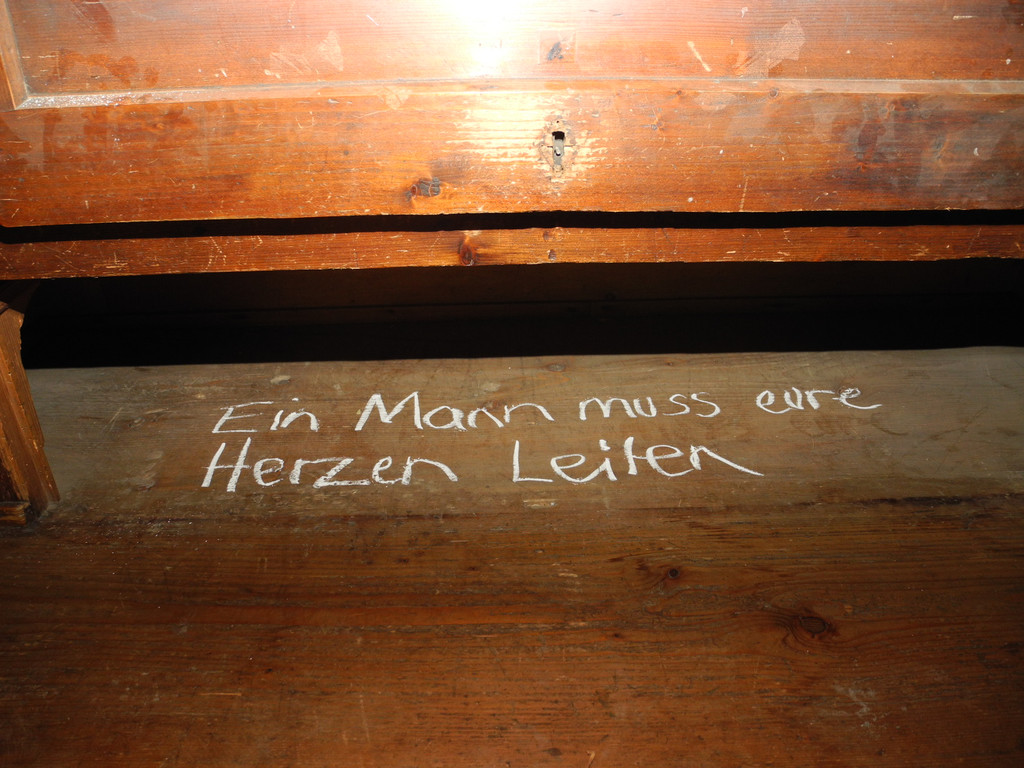 Ein Mann muss eure
Herzen Leiten